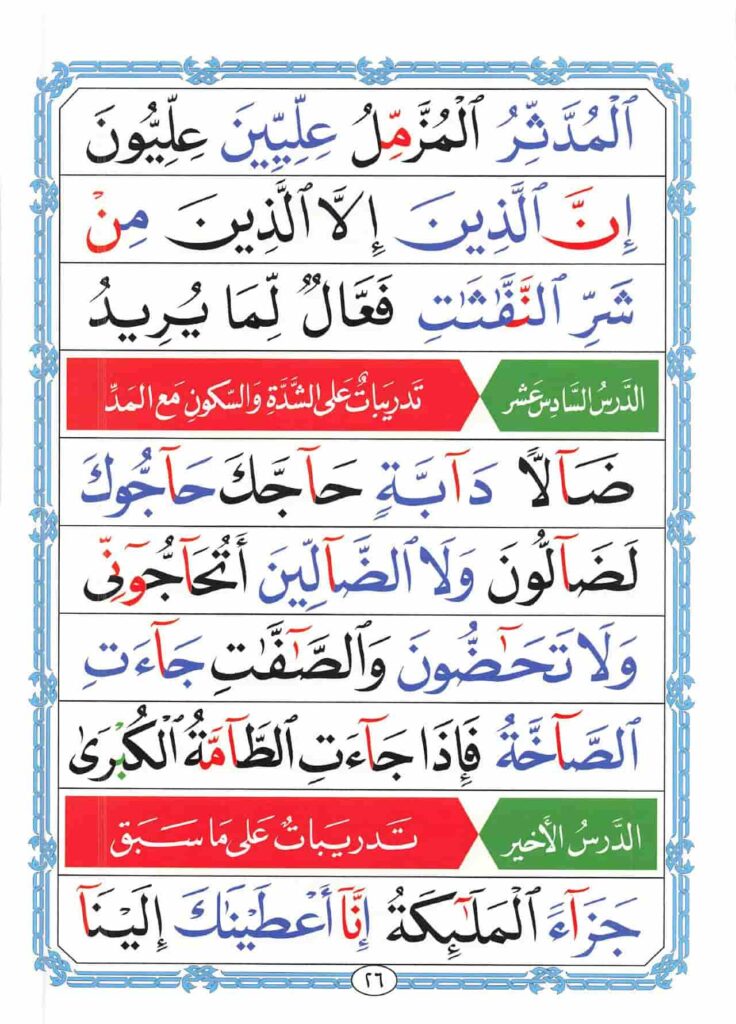 ٱلْمُدَّثِّرُ ٱلْمُزَّمِّلُ عِلِّيِّينَ عِلِّيُّونَ
إِنَّ ٱلَّذِينَ إِلَّا ٱلَّذِينَ مِن
شَرِّ ٱلنَّفَّٰثَٰتِ فَعَّالٌ لِّمَا يُرِيدُ
الدَّرسُ السَّادِس عَشر تَدريباتٌ عَلى الشَّدَّةِ وَالسّكونِ مَع المَدِّ
ضَآلًّا دَآبَّةٍ حَآجَّكَ حَآجُّوكَ
لَضَآلُّونَ وَلَا ٱلضَّآلِّينَ أَتُحَآجُّوٓنِّى
وَلَا تَحَٰٓضُّونَ وَٱلصَّٰٓفَّٰتِ جَآءَتِ
ٱلصَّآخَّةُ فَإِذَا جَآءَتِ ٱلطَّآمَّةُ ٱلْكُبْرَىٰ
الدَّرسُ الأَخير تَدريبَاتٌ عَلى مَا سَبَق
جَزَآءً ٱلْمَلَٰٓئِكَةُ إِنَّآ أَعْطَيْنَٰكَ إِلَيْنَآ
٢٦